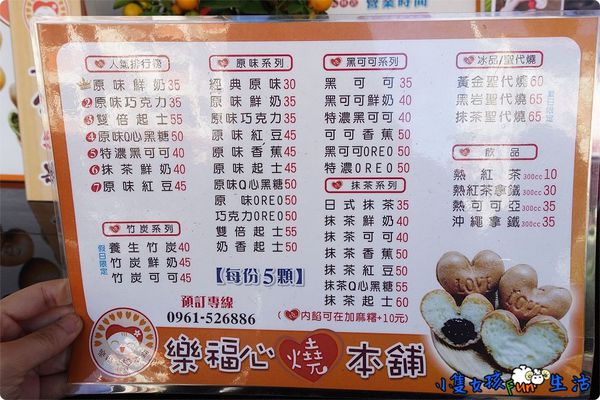 營業時間
人氣排行榜
原味鮮奶35
2原味巧克力35
3雙倍起士55
4原味Q心黑糖50
5特濃黑可可40
6抹茶鮮奶40
7原味紅豆45
竹炭系列
假日限定
養生竹炭40
竹炭鮮奶45
竹炭可可45
原味系列
經典原味30
原味鮮奶35
原味巧克力35
原味紅豆45
原味香蕉45
原味起士45
原味Q心黑糖50
原味OREO50
巧克力OREO50
雙倍起士55
奶香起士50
【每份5顆】
黑可可系列
黑可可35
黑可可鮮奶40
特濃黑可可40
可可香蕉50
黑可可OREO50
特濃OREO50
抹茶系列
日式抹茶35
抹茶鮮奶40
抹茶可可40
抹茶香蕉50
抹茶紅豆50
抹茶Q心黑糖55
抹茶起士60
(內餡可在加麻糬+10元)
冰品/聖代燒
黃金聖代燒60
黑岩聖代燒65
抹茶聖代燒65
假日限定
飲品
熱紅茶300cc10
熱紅茶拿鐵300cc30
熱可可亞300cc35
沖繩拿鐵300cc35
預訂專線
0961-526886
樂福心燒本舖
LOVE
LOVE
小隻女孩Fun生活